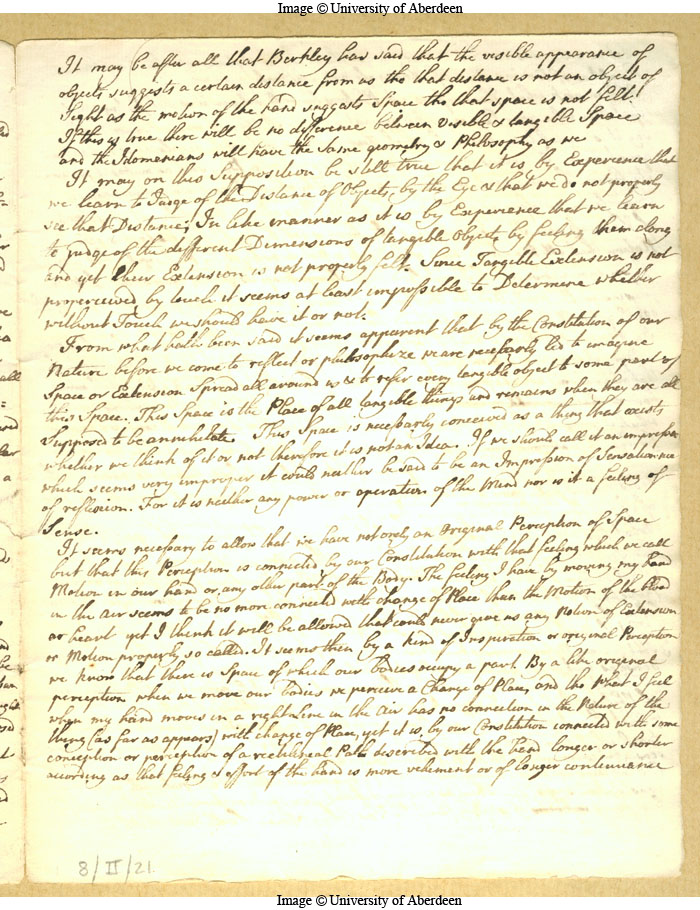 Image © University of Aberdeen
It may be after all that Berkley has said that the visible appearance of
objects suggests a certain distance from us tho that distance is not an object of
Sight as the motion of the hand suggests Space tho that space is not felt.
If this is true there will be no difference between visible & tangible Space
and the Idomenians will have the same geometry & Philosophy as we
It may on this Supposition be still true that it is by Experience that
we learn to Judge of the Distance of Objects, by the Eye & that we do not properly
see that Distance; In like manner as it is by Experience that we learn
to judge of the different Dimensions of tangible Objects by feeling them along
and yet their Extension is not properly felt. Since Tangible Extension is not
properceived by touch it seems at least impossible to Determine whether
without Touch we should have it or not.
From what hath been said it seems apparent that by the Constitution of our
Nature before we come to reflect or philosophize we are necessarly led to imagine
Space or Extension Spread all around us & to refer every tangible object to some part of
this Space. This Space is the Place of all tangible things and remains when they are all
Supposed to be annihilate. This Space is necessarly conceived as a thing that exists
whether we think of it or not therefore it is not an Idea. If we should call it an impression
which seems very improper it could neither be said to be an Impression of Sensation nor
of reflexion. For it is neither any power or operation of the Mind nor is it a feeling of
Sense.
It seems necessary to allow that we have not only an original Perception of Space
but that this Perception is connected by our Constitution with that feeling which we call
Motion in our hand or any other part of the Body. The feeling I have by moving my hand
in the air seems to be no more connected with change of Place than the Motion of the Blood
or heart yet I think it will be allowed that could never give us any Notion of Extension
or Motion properly so called. It seems then by a kind of Inspiration or original Perception
we know that there is Space of which our bodies occupy a part. By a like original
perception when we move our bodies we perceive a Change of Place, and tho What I feel
when my hand moves in a right Line in the Air has no connection in the Nature of the
thing (as far as appears) with change of Place, yet it is, by our Constitution connected with some
conception or perception of a rectilineal Path described with the hand longer or shorter
according as that feeling & effort of the hand is more vehement or of longer continuance
8/II/21
Image © University of Aberdeen